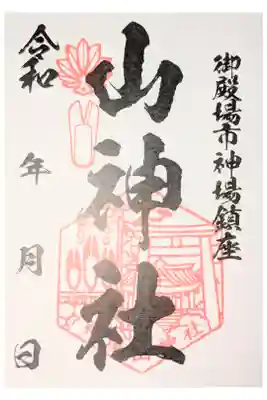 御殿場市神場鎮座
山神社
令和 年 月 日